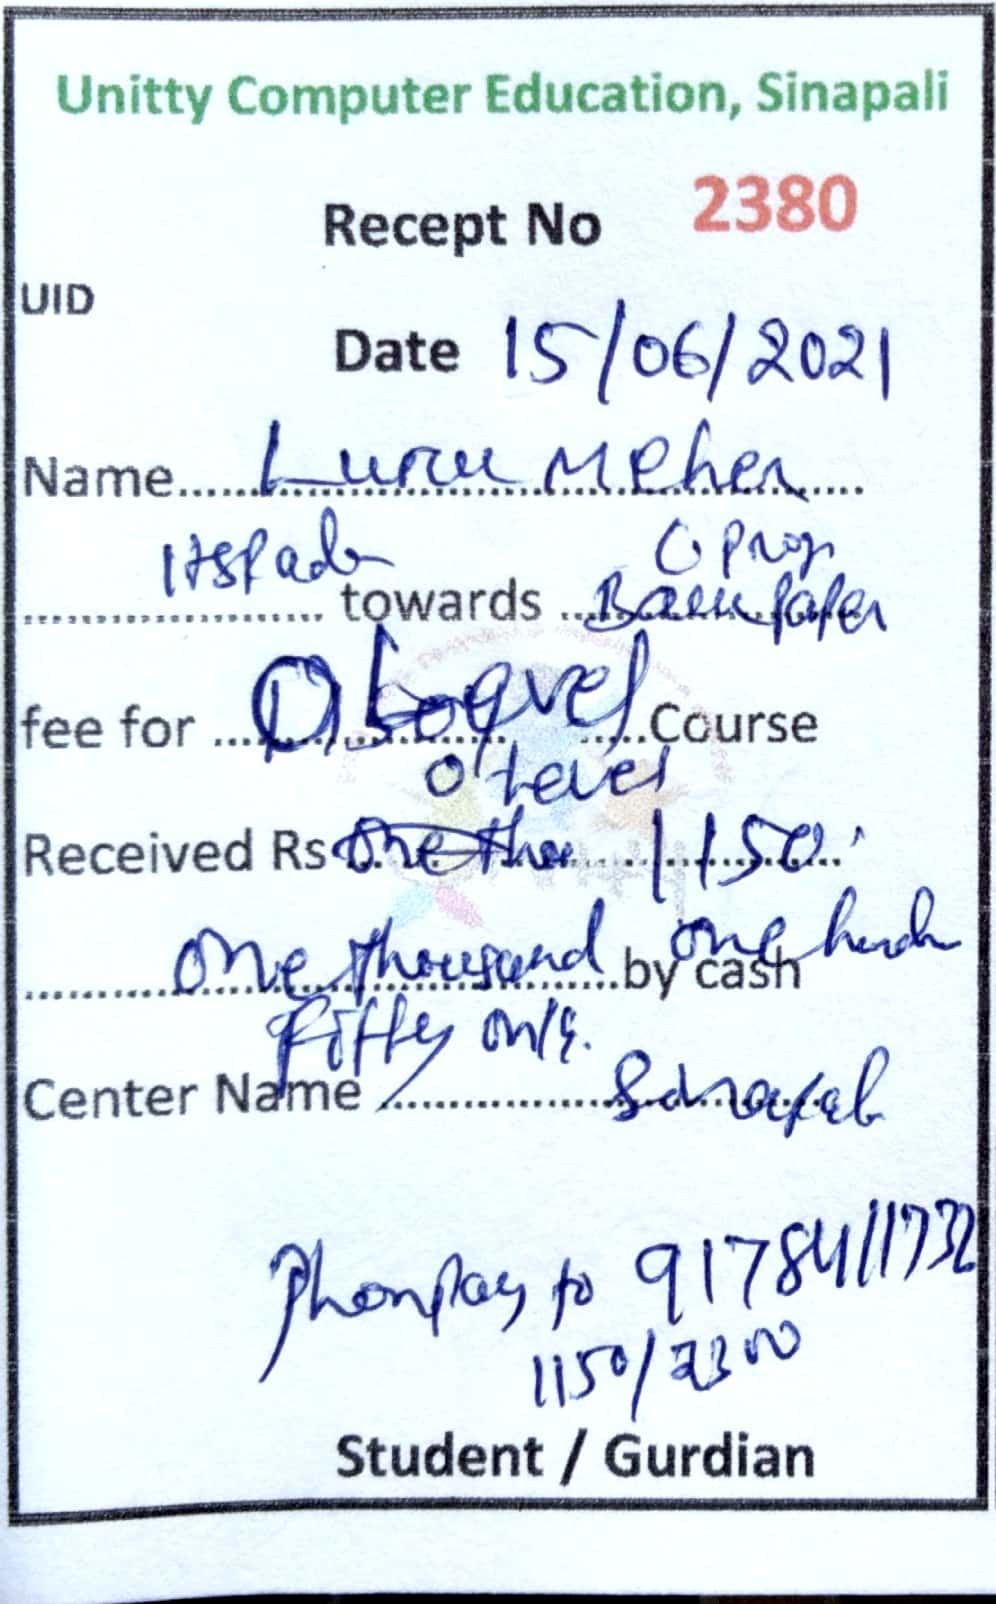 Unitty Computer Education, Sinapali
Recept No 2380
UID
Date 15/06/2021
Name Luru Meher
towards
C Prog
Back Paper
fee for Course
O Level
Received Rs 1150
One thousand by cash one
fifty only.
Center Name
Phonpay to 9178411732
1150/2300
Student / Gurdian